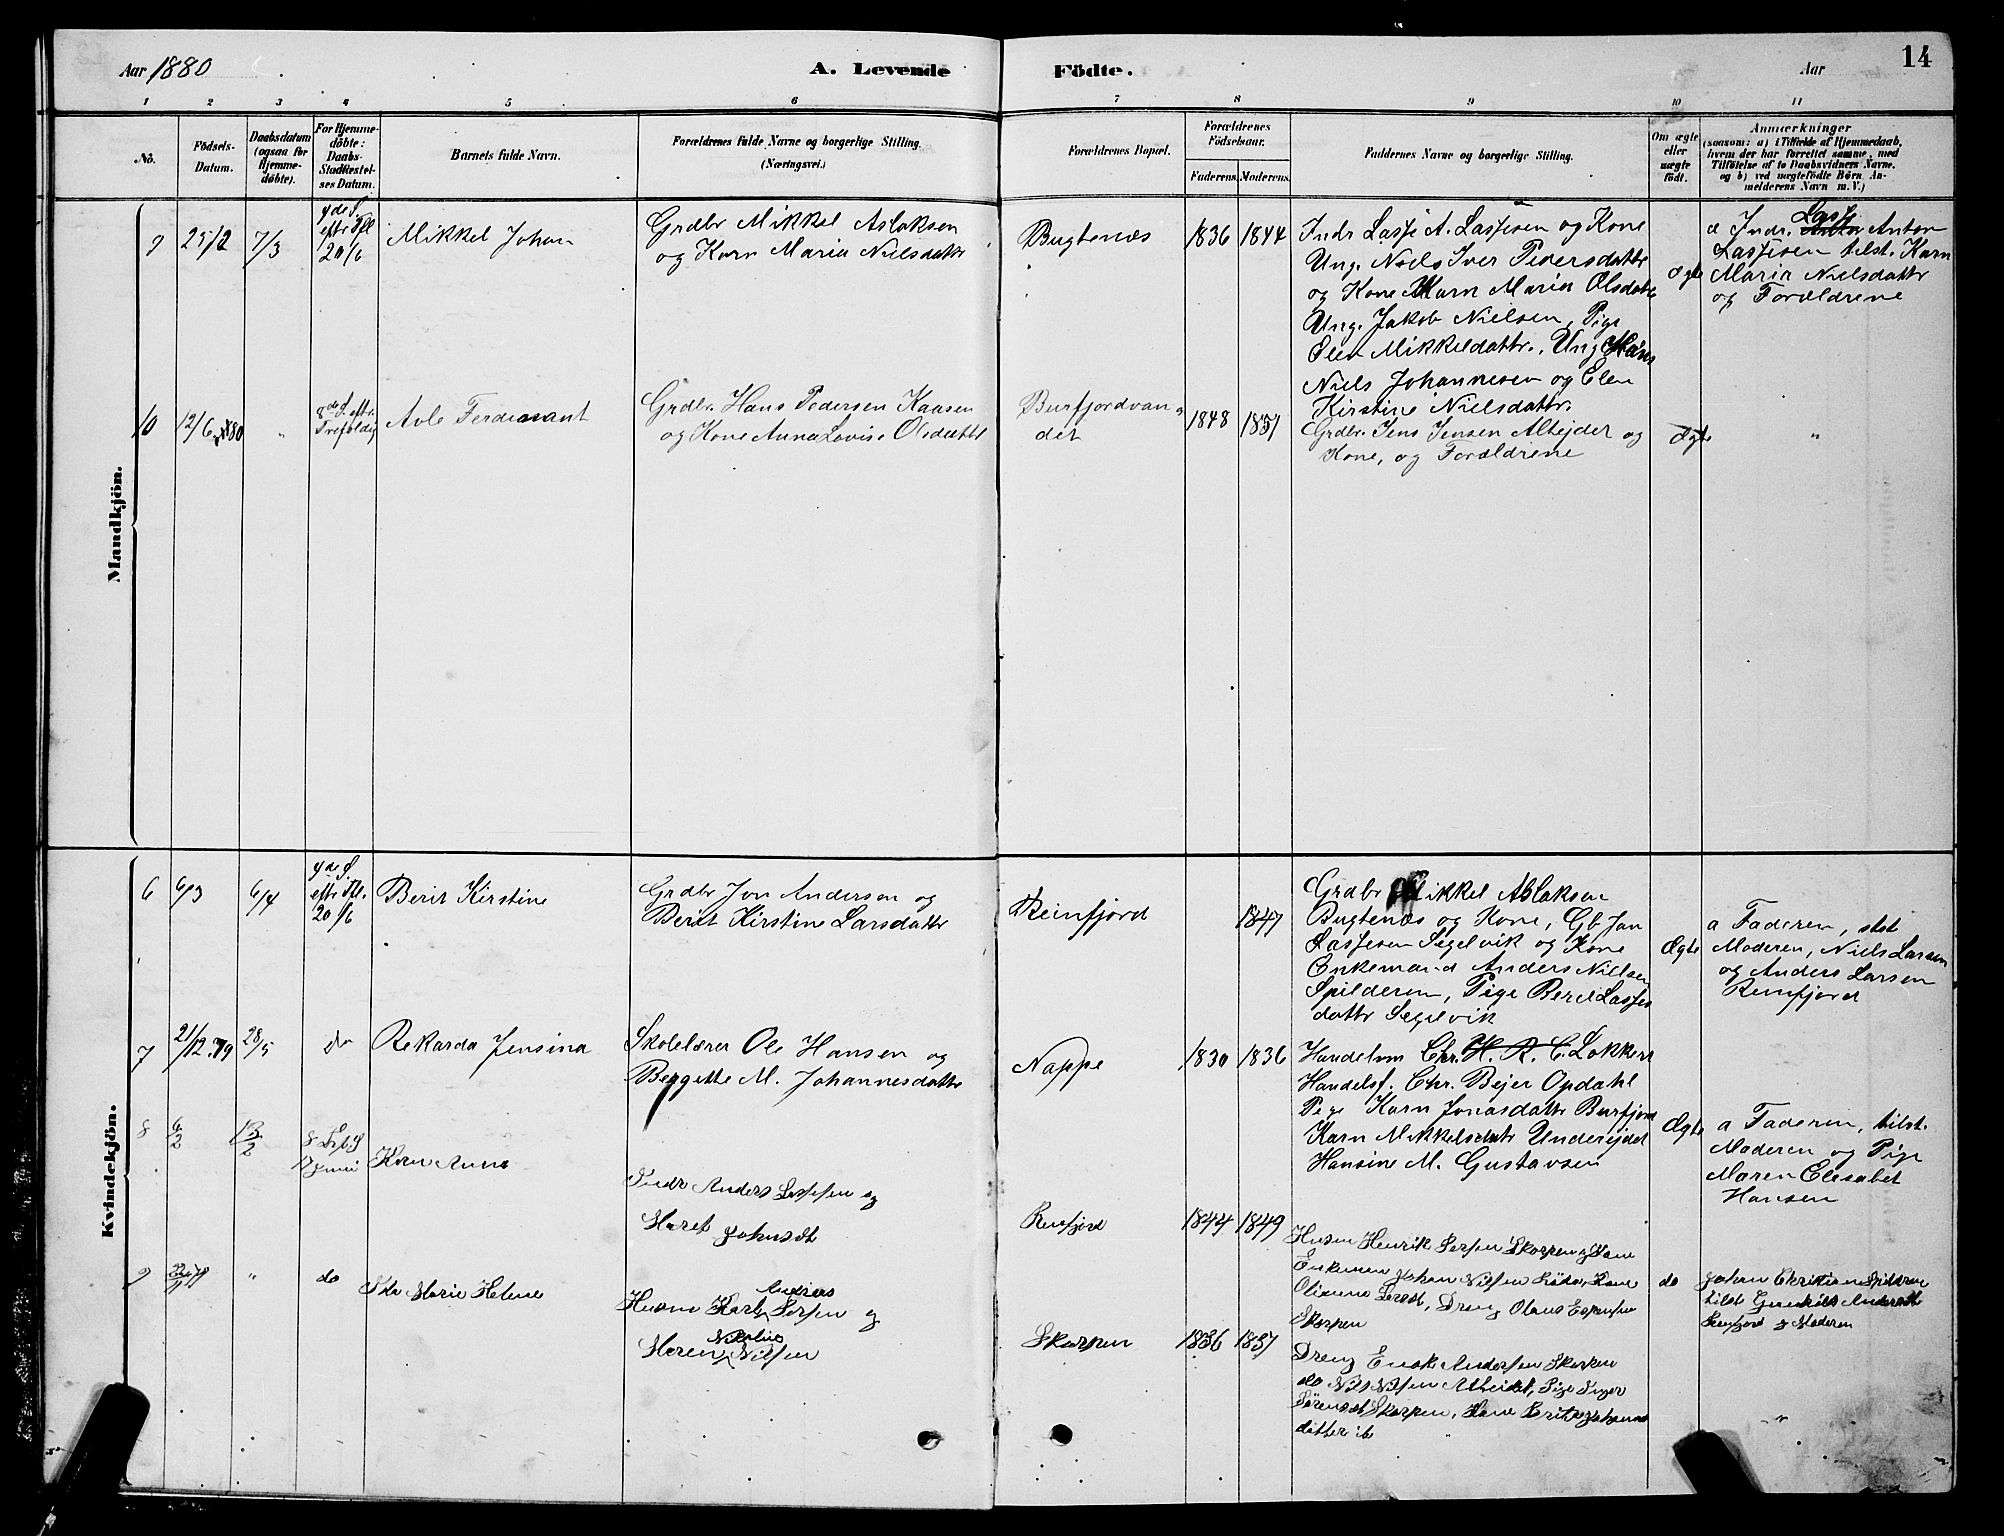 Aar 1880
A. Levende
Födte.
Aar
14
1 2 3 4 5 6 7 8 9 10 11
No.
Födsels-
Datum.
Daabsdatum
(ogsaa for
Hjemme-
döbte).
For Hjemme-
döbte:
Daabs-
Stadfæstel-
ses Datum.
Barnets fulde Navn.
Forældrenes fulde Navne og borgerlige Stilling.
(Næringsvei.)
Forældrenes Bopæl.
Forældrenes
Födselsaar.
Faderens.
Moderens.
Faddernes Navne og borgerlige Stilling.
Om ægte
eller
uægte
födt.
Anmærkninger
(saasom: a) i Tilfælde af Hjemmedaab,
hvem der har forrettet samme, med
Tilföielse af to Daabsvidners Navne.
og b) ved uægtefödte Börn An-
melderens Navn m. V.)
Mandkjön.
9
25/2
7/3
4de S.
eftr Tfl
20/6
Mikkel Johan
Grdbr Mikkel Aslaksen
og Karn Maria Nielsdattr
Bugtenæs
1836
1844
Indr Lasse A. Lassesen og Kone
Ung. Niels Iver Pedersdattr
og Kone Karn Maria Olsdatr
Ung. Jakob Nielsen, Pige
Elen Mikkeldattr., Ung Hans
Niels Johannesen og Elen
Kirstine Nielsdattr.
Ægte
a Indr. Lasse Anton
Lassesen tilst. Karn
Maria Nielsdattr
og Forældrene
10
12/6 1880
"
8de S. eftr.
Trefoldig
Avle Ferdinant
Grdbr. Hans Pedersen Kaasen
og Kone Anna Lovise Olsdattr
Burfjordvan
det
1848
1851
Grdbr. Jens Jensen Alteider og
Kone, og Forældrene
Ægte
"
Kvindekjön.
6
6/3
6/4
4de S.
eftr Tfl.
20/6
Berit Kirstine
Grdbr Jon Andersen og
Berit Kirstine Larsdattr
Reinfjord
1847
Grdbr Mikkel Aslaksen
Bugtenæs og Kone, Gb Jan
Lassesen Segelvik og Kone
Enkemand Anders Nielsen
Spilderen, Pige Beret Lasses
dattr Segelvik
Ægte
a Faderen, stet
Moderen, Niels Larsen
og Anders Larsen
Reinfjord
7
21/12 79
28/5
do
Rekarda Jensina
Skolelærer Ole Hansen og
Bergette M. Johannesdattr
Nappe
1830
1836
Handelsm Chr. H. R. C. Lokkert
Handelsf. Chr. Bejer Opdahl
Pige Karn Jonasdattr Burfjord
Karn Mikkelsdatr Undereidet
Hansine M. Gustavsen
Ægte
a Faderen, tilst.
Moderen og Pige
Maren Elesabet
Hansen
8
6/2
13/2
Karn Anna
Indr Anders Lassesen og
Maret Johnsdt
Reinfjord
1844
1849
Husm Henrik Persen Skorpen og Kone
Enkeman Johan Nilsen
Persdt, Dreng Olaus Espensen
Skorpen
do
Johan Christian Spilderen
tilst Gunhild Andersdt
Reinfjord og Moderen
9
"
do
Ida Marie Helene
Husm Karl Andreas Persen og
Maren Nikoline Nilsen
Skorpen
1836
1837
Dreng Enok Andersen Skorpen
do Nils Nilsen Alteidet, Pige Inger
Sörensdt Skorpen, Kone Brite Johannes
datter ib
"